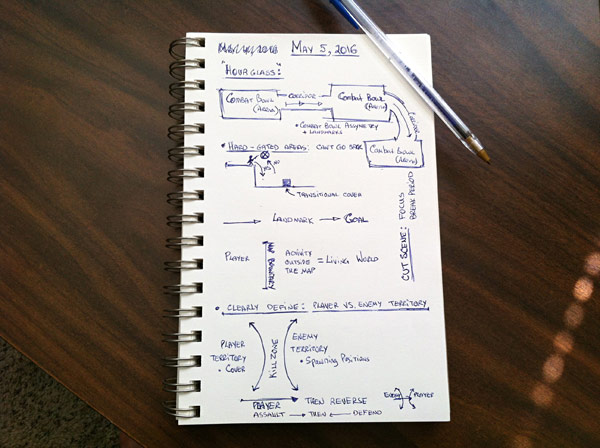 May 5, 2016
"Hourglass:"
Combat Bowl (Arena)
Corridor
Combat Bowl (Arena)
Corridor
• Combat Bowl Assymetry + Landmarks
Combat Bowl (Arena)
• Hard-gated areas: can't go back
Yes
No
Transitional cover
Landmark → Goal
Cut scene: Focus
Break period
Player
Map Boundary
Activity outside the map = Living World
• Clearly define: Player vs. Enemy territory
Player territory
• Cover
Kill zone
Enemy territory
• Spawning Positions
Player → Then reverse
Assault → Then ← Defend
Enemy
Player